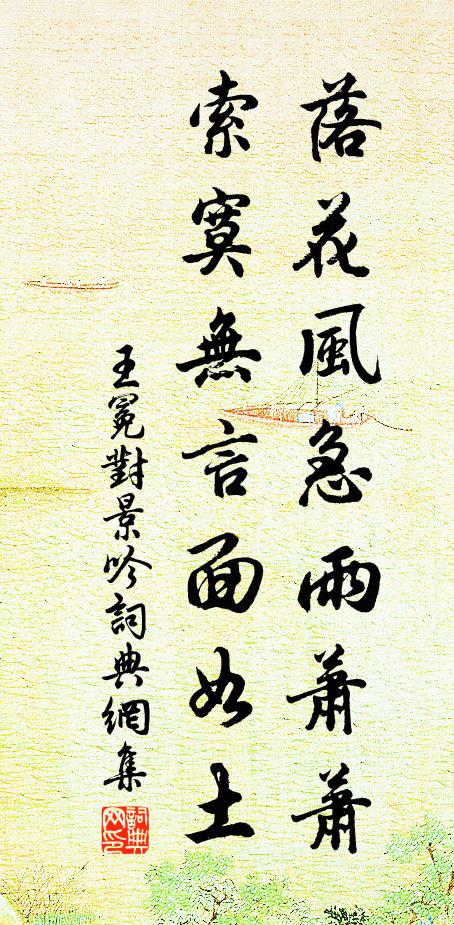 落花風急雨蕭蕭
索寞無言面如土
王冕對景吟詞典網集
詞典網印